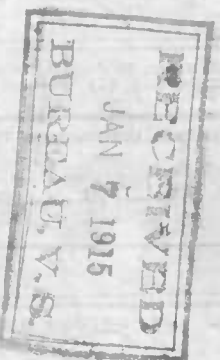 RECEIVED
JAN 7 1915
BUREAU, V. S.